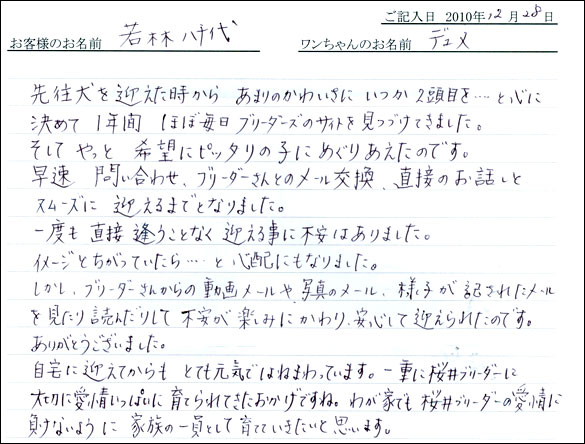 ご記入日 2010年12月28日
お客様のお名前 若林八千代 ワンちゃんのお名前 デュメ
先住犬を迎えた時から あまりのかわいさに いつか2頭目を‥‥と心に
決めて 1年間 ほぼ毎日ブリーダーズのサイトを見つづけてきました。
そして やっと 希望にピッタリの子にめぐりあえたのです。
早速 問い合わせ、ブリーダーさんとのメール交換、直接のお話しと
スムーズに 迎えるまでとなりました。
一度も 直接 逢うことなく 迎える事に不安はありました。
イメージとちがっていたら‥‥と心配にもなりました。
しかし、ブリーダーさんからの動画メールや、写真のメール、様子が記されたメール
を見たり読んだりして 不安が楽しみにかわり、安心して迎えられたのです。
ありがとうございました。
自宅に迎えてからも とても元気ではねまわっています。一重に桜井ブリーダーに
大切に愛情いっぱいに育てられてきたおかげですね。わが家でも 桜井ブリーダーの愛情に
負けないように 家族の一員として育てていきたいと思います。